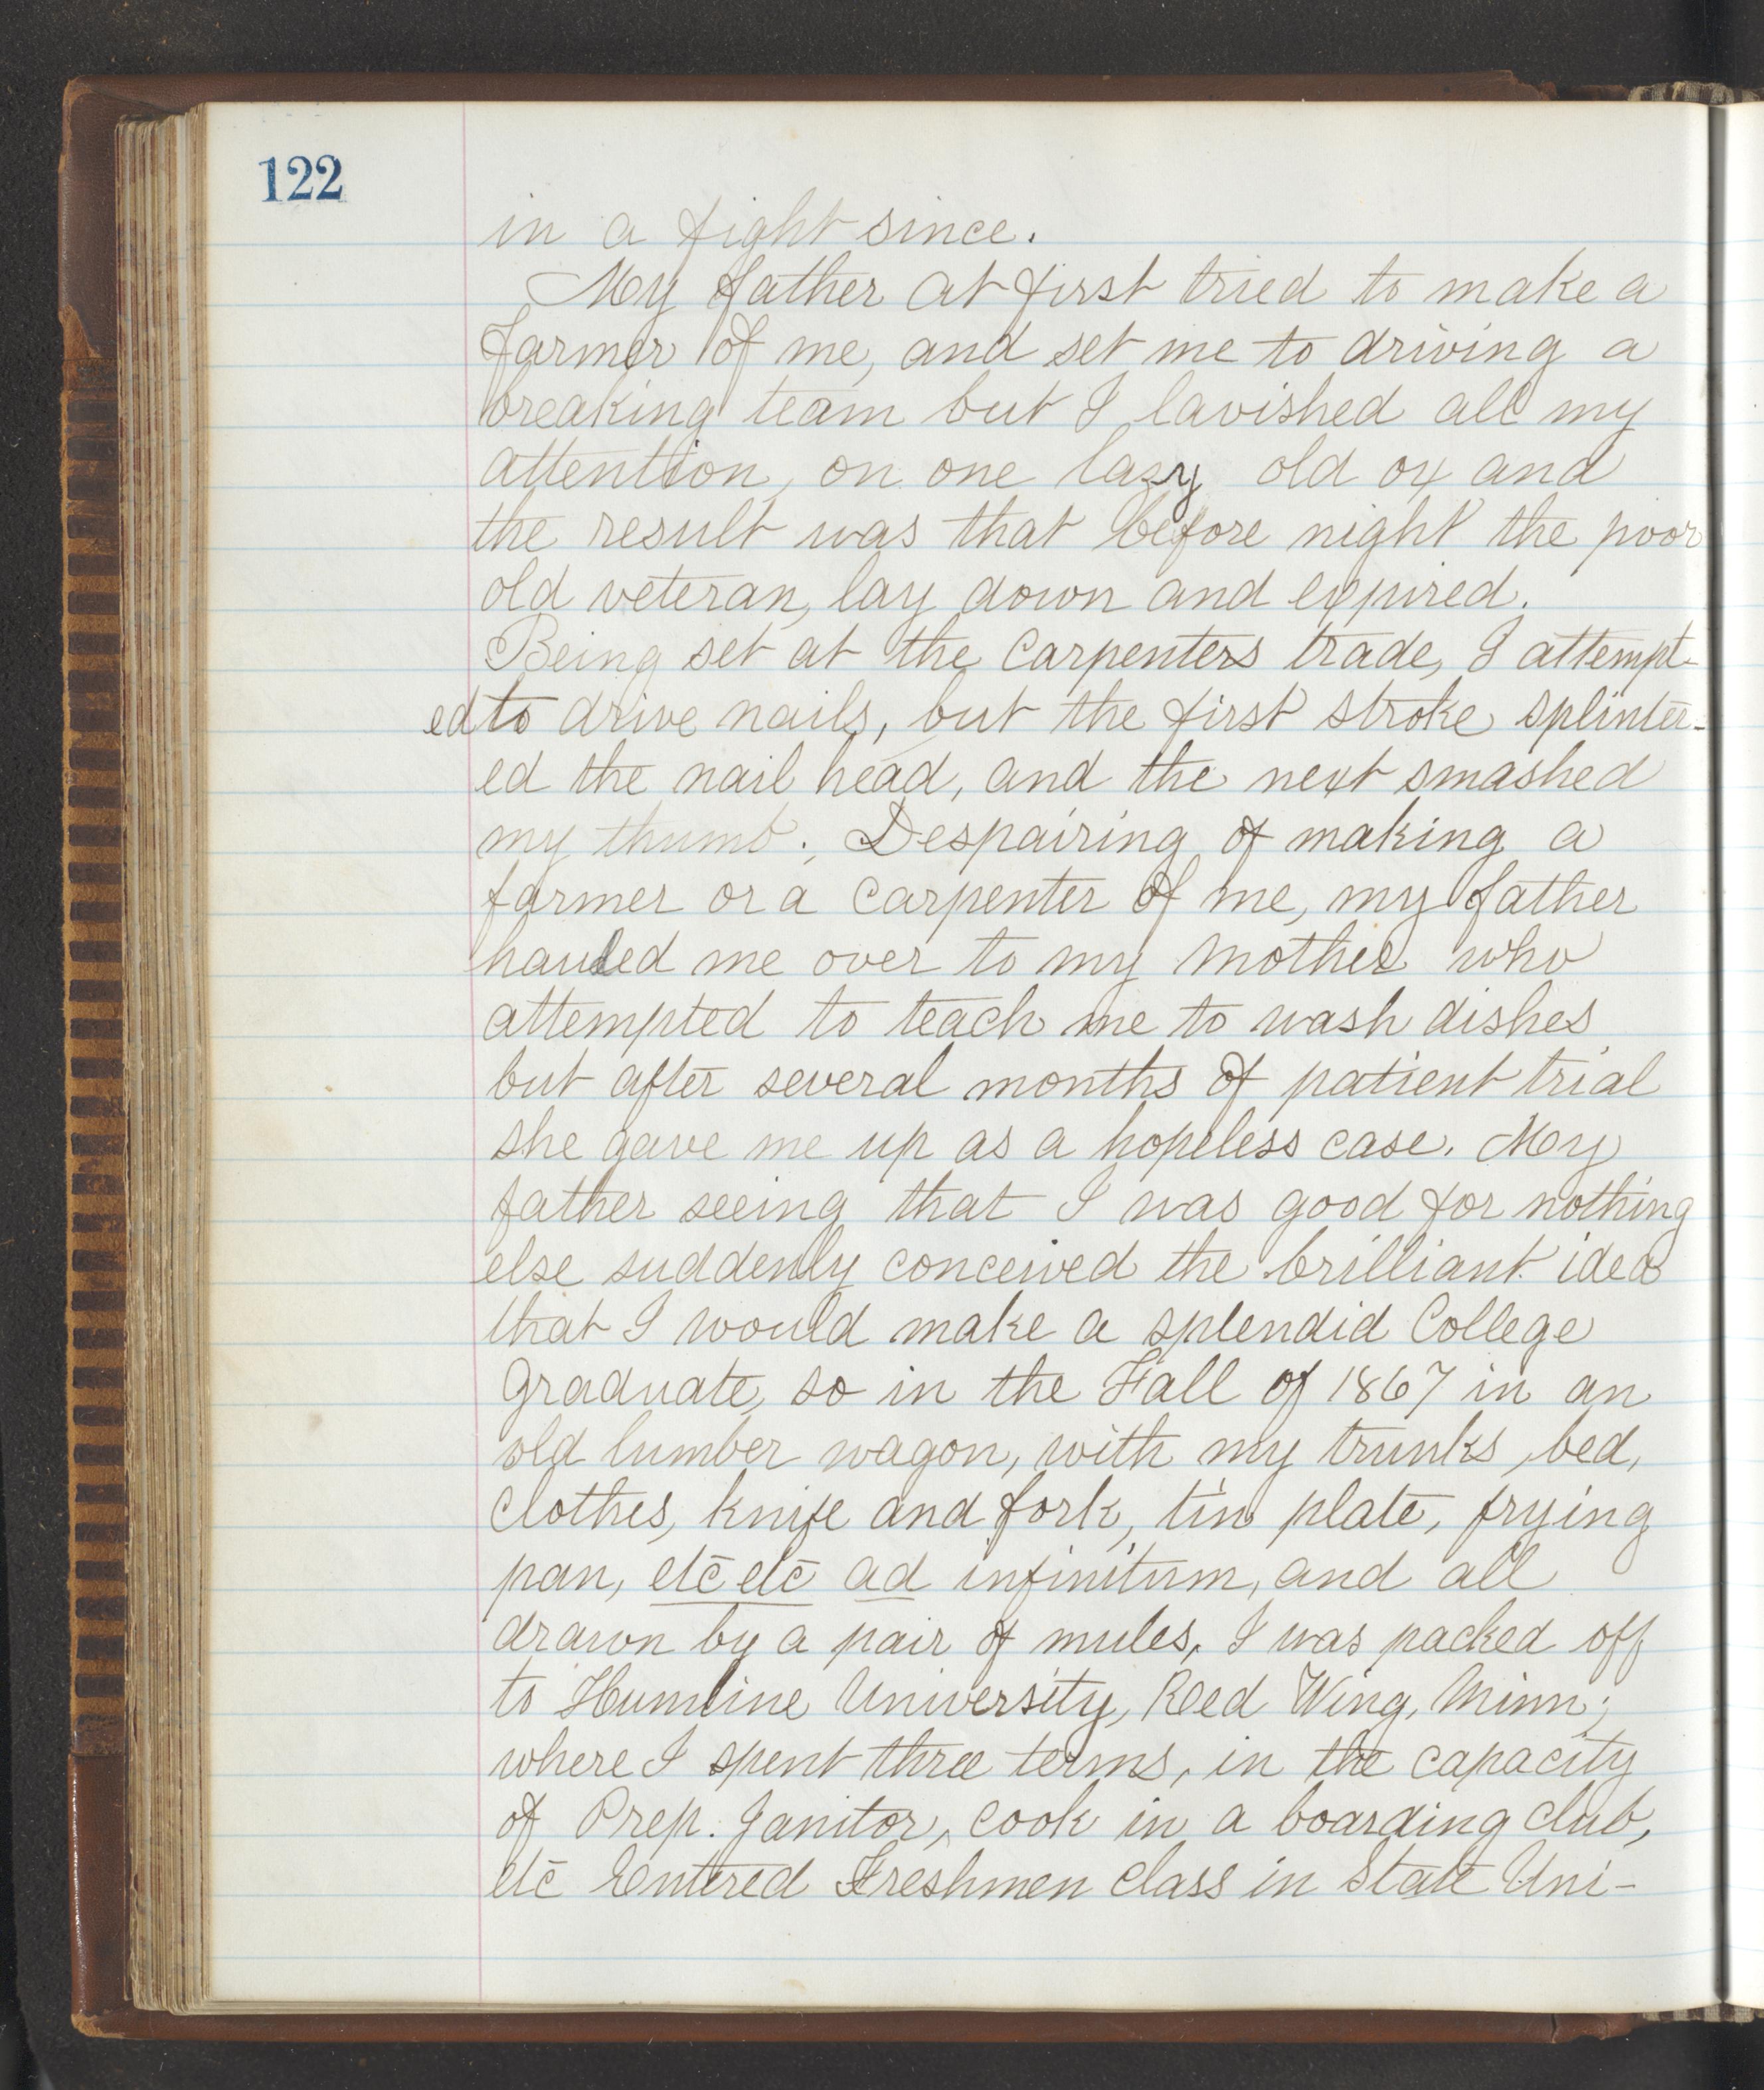 122
in a fight since.
My father at first tried to make a
farmer of me, and set me to driving a
breaking team but I lavished all my
attention, on one lazy old ox and
the result was that before night the poor
old veteran, lay down and expired.
Being set at the carpenters trade, I attempt-
ed to drive nails, but the first stroke splinter-
ed the nail head, and the next smashed
my thumb. Despairing of making a
farmer or a carpenter of me, my father
hauled me over to my mother who
attempted to teach me to wash dishes
but after several months of patient trial
she gave me up as a hopeless case. My
father seeing that I was good for nothing
else suddenly conceived the brilliant idea
that I would make a splendid College
graduate, so in the Fall of 1867 in an
old lumber wagon, with my trunks, bed,
clothes, knife and fork, tin plate, frying
pan, etc etc ad infinitum, and all
drawn by a pair of mules, I was packed off
to Humline University, Red Wing, Minn;
where I spent three terms, in the capacity
of Prep. Janitor, cook in a boarding club,
etc Entered Freshmen class in State Uni-